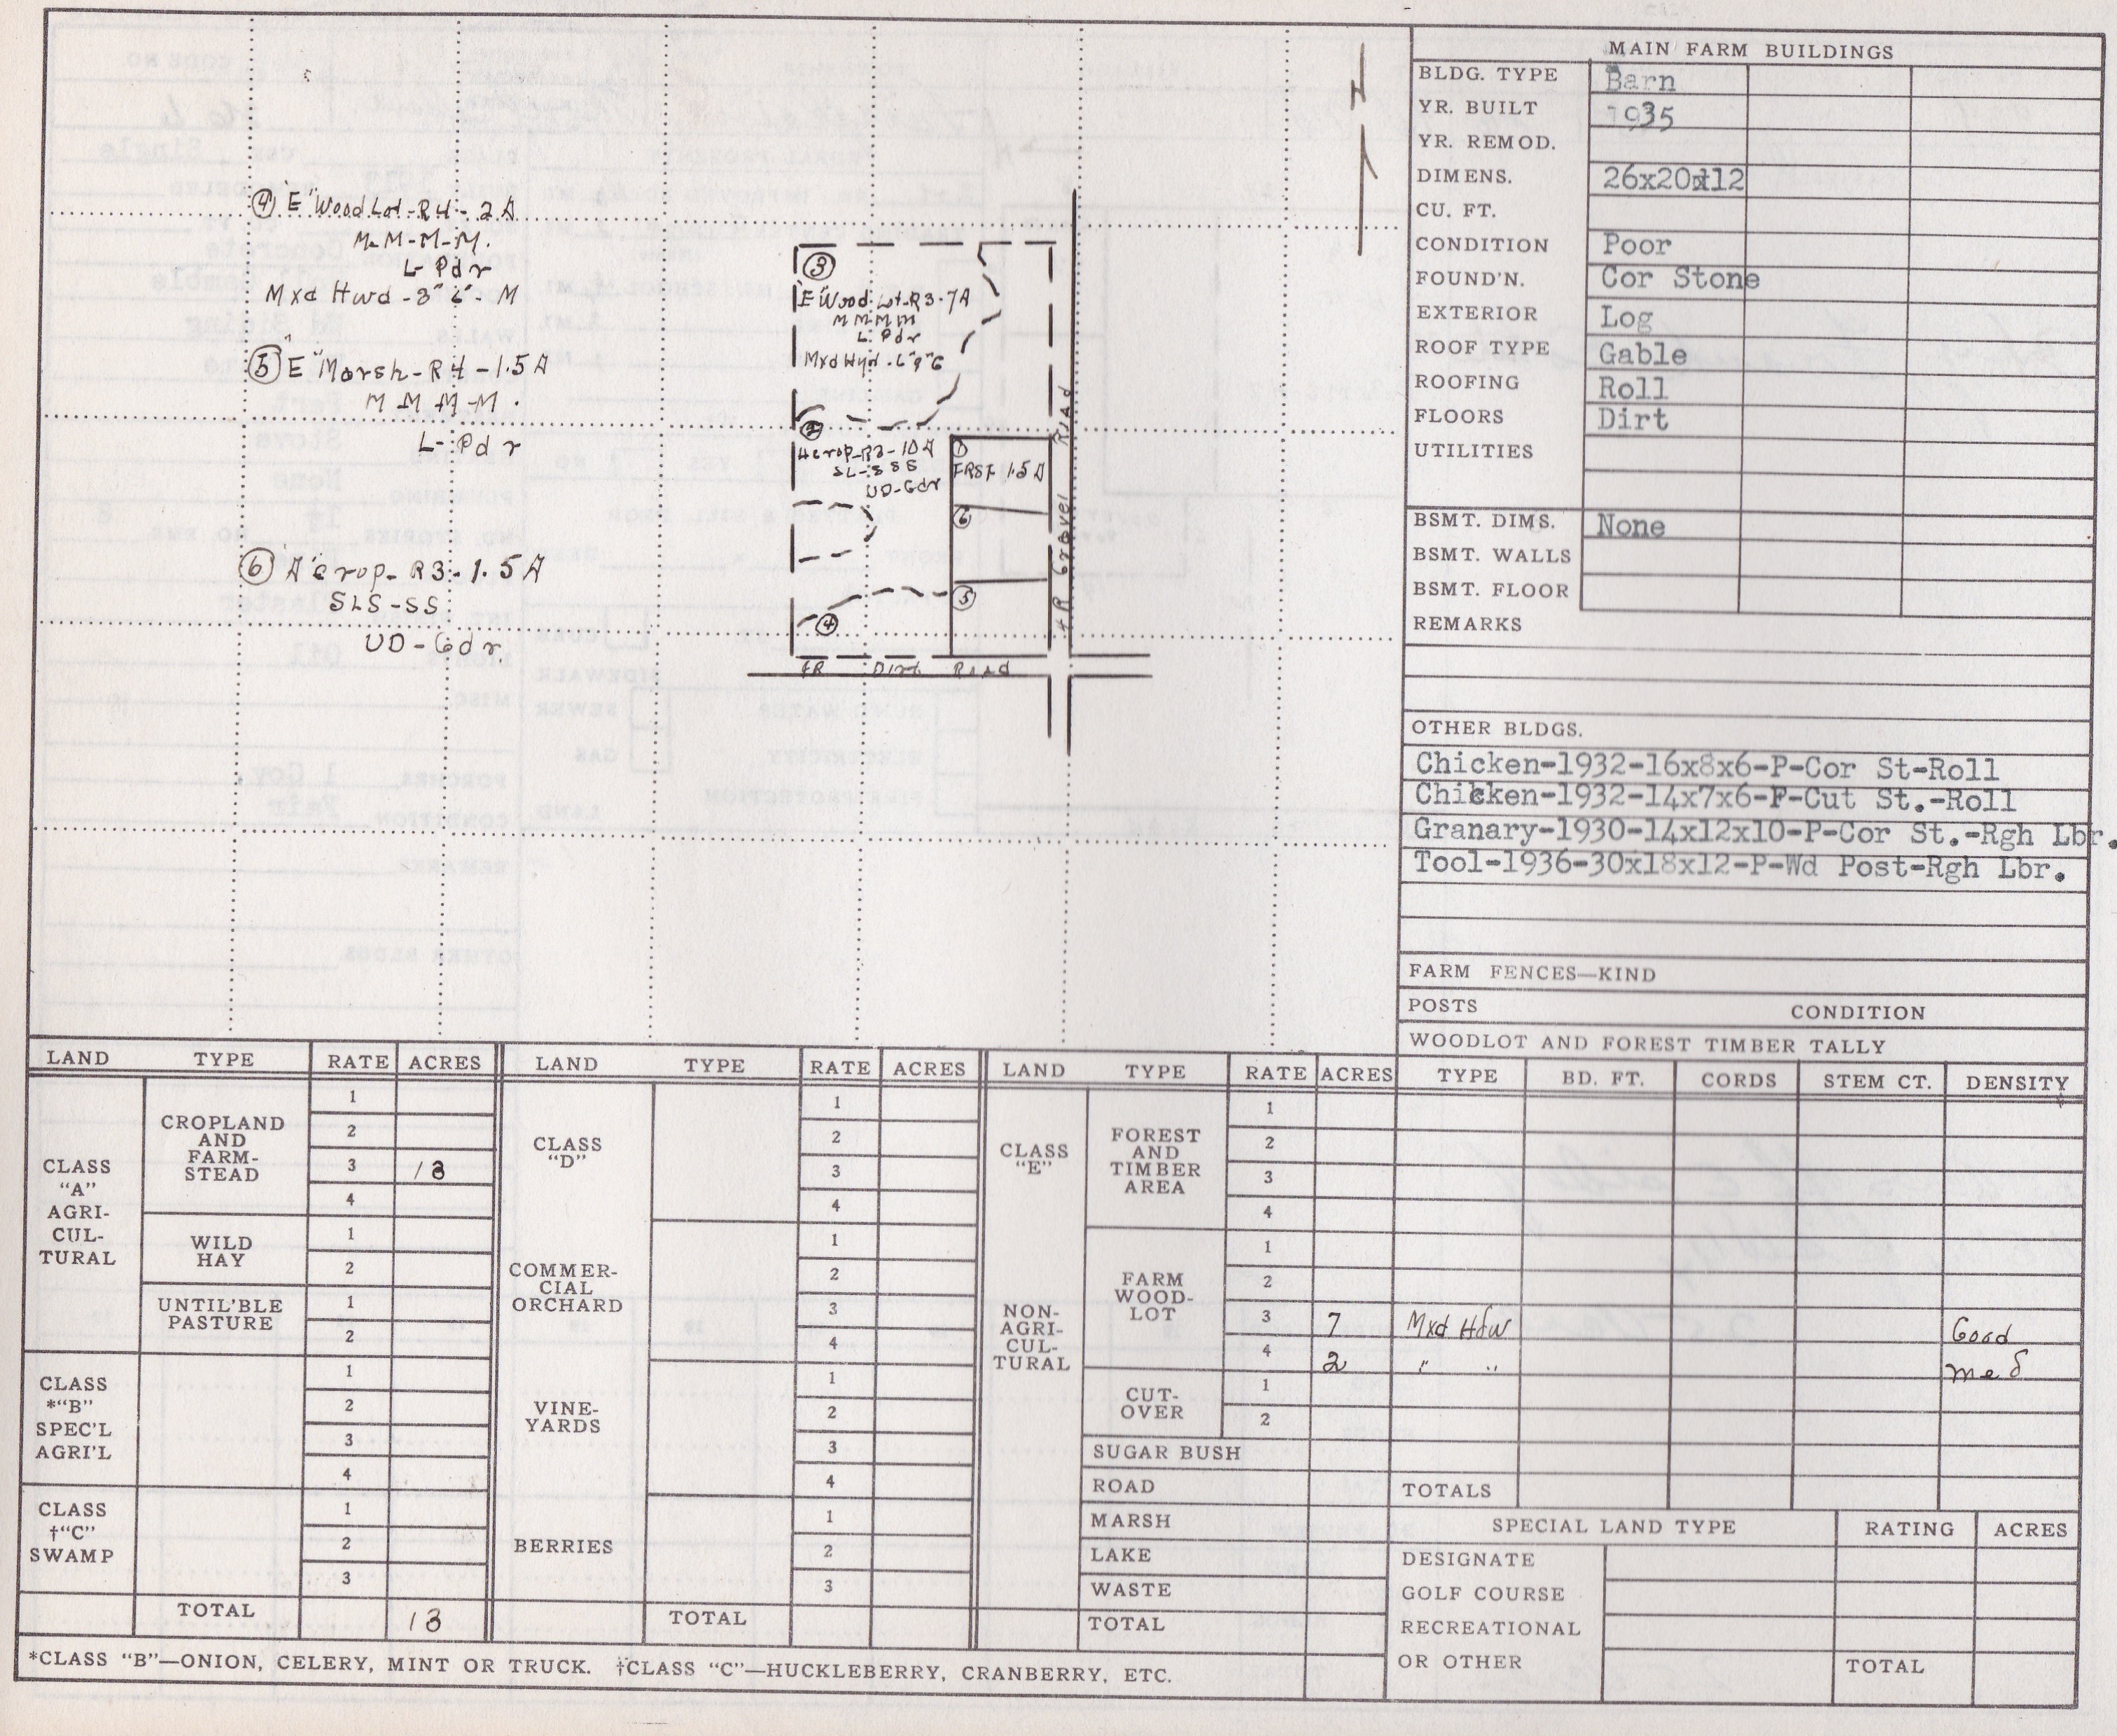 ④ "E" Wood Lot-R4-2A
M-M-M-M.
L-Pdr
Mxd Hwd -3" 6"- M
⑤ "E" Marsh-R4-1.5A
M-M-M-M.
L-Pdr
⑥ A crop-R3-1.5A
SLS-SS
UD-Gdr.
③
"E" Wood Lot-R3-7A
M M M M
L Pdr
②
A crop-R3-10A
SL-SSS
UD-Gdr
①
FRST 1.5A
⑥
⑤
④
4R Gravel Road
FR Dirt Road
N
MAIN FARM BUILDINGS
BLDG. TYPE Barn
YR. BUILT 1935
YR. REMOD.
DIMENS. 26x20x12
CU. FT.
CONDITION Poor
FOUND'N. Cor Stone
EXTERIOR Log
ROOF TYPE Gable
ROOFING Roll
FLOORS Dirt
UTILITIES
BSMT. DIMS. None
BSMT. WALLS
BSMT. FLOOR
REMARKS
OTHER BLDGS.
Chicken-1932-16x8x6-P-Cor St-Roll
Chicken-1932-14x7x6-P-Cut St.-Roll
Granary-1930-14x12x10-P-Cor St.-Rgh Lbr.
Tool-1936-30x18x12-P-Wd Post-Rgh Lbr.
FARM FENCES—KIND
POSTS CONDITION
WOODLOT AND FOREST TIMBER TALLY
TYPE BD. FT. CORDS STEM CT. DENSITY
Mxd Hdw Good
" " med
TOTALS
LAND TYPE RATE ACRES
CLASS "A" AGRI-CUL-TURAL
CROPLAND AND FARM-STEAD
1
2
3 13
4
WILD HAY
1
2
UNTIL'BLE PASTURE
1
2
CLASS *"B" SPEC'L AGRI'L
1
2
3
4
CLASS †"C" SWAMP
1
2
3
TOTAL 13
LAND TYPE RATE ACRES
CLASS "D"
COMMER-CIAL ORCHARD
1
2
3
4
1
2
3
4
VINE-YARDS
1
2
3
4
BERRIES
1
2
3
TOTAL
LAND TYPE RATE ACRES
CLASS "E"
NON-AGRI-CUL-TURAL
FOREST AND TIMBER AREA
1
2
3
4
FARM WOOD-LOT
1
2
3 7
4 2
CUT-OVER
1
2
SUGAR BUSH
ROAD
MARSH
LAKE
WASTE
TOTAL
SPECIAL LAND TYPE RATING ACRES
DESIGNATE
GOLF COURSE
RECREATIONAL
OR OTHER
TOTAL
*CLASS "B"—ONION, CELERY, MINT OR TRUCK. †CLASS "C"—HUCKLEBERRY, CRANBERRY, ETC.